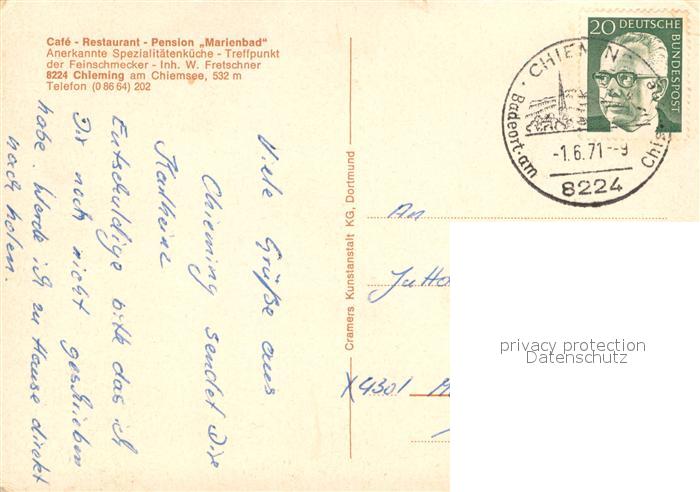 Café - Restaurant - Pension „Marienbad"
Anerkannte Spezialitätenküche - Treffpunkt
der Feinschmecker - Inh. W. Fretschner
8224 Chieming am Chiemsee, 532 m
Telefon (0 86 64) 202
Viele Grüße aus
Chieming sendet Dir
Karlheinz
Entschuldige bitte das ich
Dir noch nicht geschrieben
habe. Werde ich zu Hause direkt
nach holen.
Cramers Kunstanstalt KG, Dortmund
20 DEUTSCHE
BUNDESPOST
CHIEMIN
Badeort am
Chie
-1.6.71--9
8224
An
X4301
privacy protection
Datenschutz